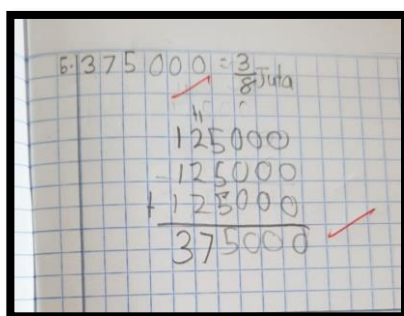 5. 375 000 = 3/8 Juta
125000
125000
+ 125000
375000